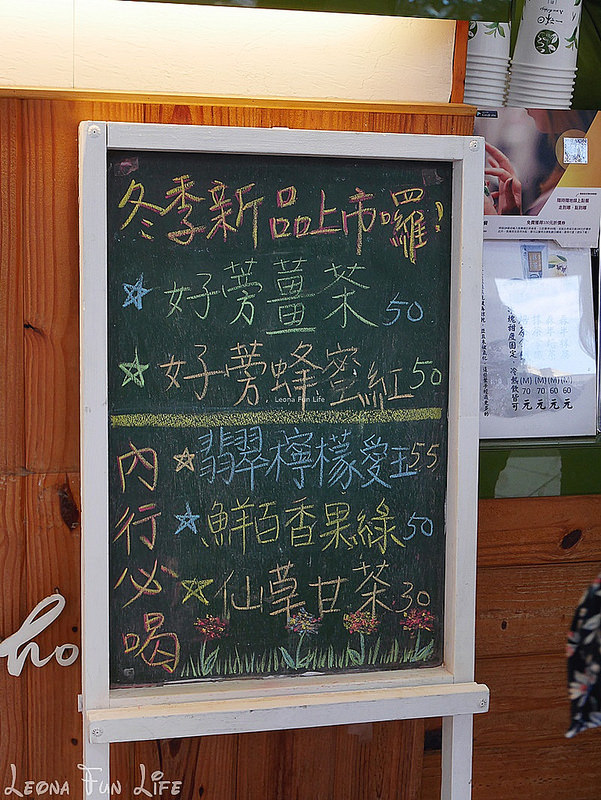 冬季新品上市囉!
☆好蒡薑茶 50
☆好蒡蜂蜜紅 50
Leona Fun Life
內行必喝
☆翡翠檸檬愛玉 55
☆鮮百香果綠 50
☆仙草甘茶 30
ho
(M) (M) (M) (M)
70 70 60 60
元 元 元 元
Leona Fun Life